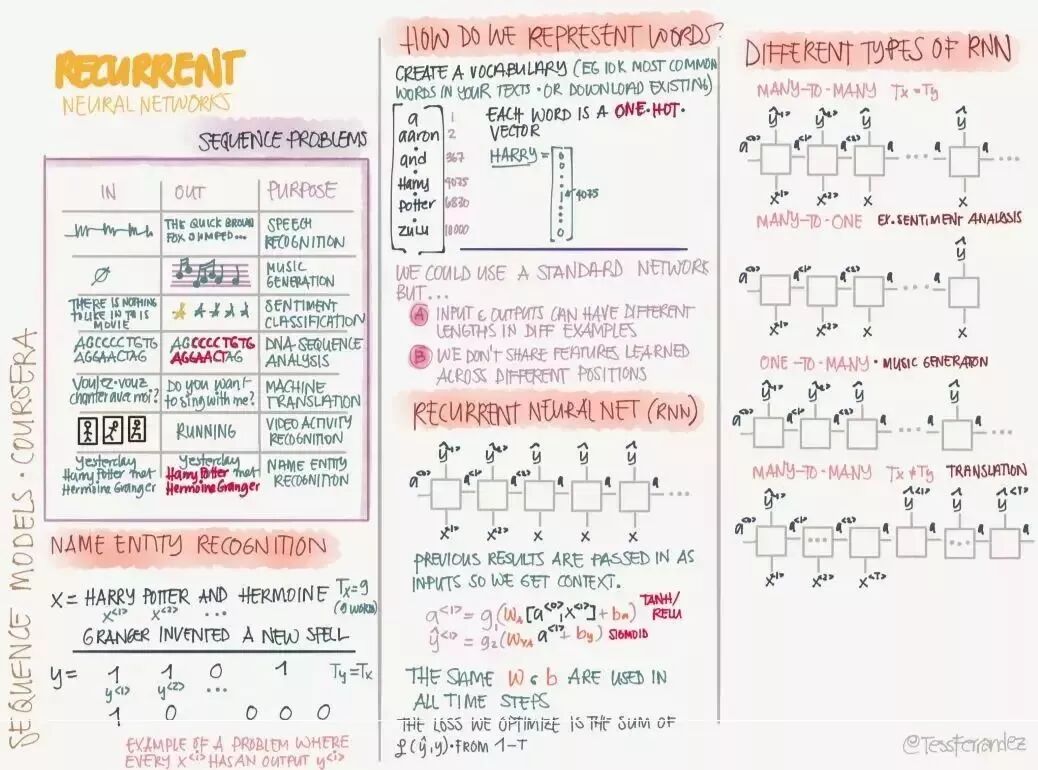 RECURRENT
NEURAL NETWORKS
SEQUENCE PROBLEMS
IN OUT PURPOSE
THE QUICK BROWN
FOX JUMPED...
SPEECH
RECOGNITION
∅
MUSIC
GENERATION
THERE IS NOTHING
TO LIKE IN THIS
MOVIE
SENTIMENT
CLASSIFICATION
AGCCCCTGTG
AGGAACTAG
AGCCCCTGTG
AGGAACTAG
DNA SEQUENCE
ANALYSIS
Voulez-vouz
chanter avec moi?
Do you want
to sing with me?
MACHINE
TRANSLATION
RUNNING
VIDEO ACTIVITY
RECOGNITION
Yesterday
Harry Potter met
Hermoine Granger
Yesterday
Harry Potter met
Hermoine Granger
NAME ENTITY
RECOGNITION
SEQUENCE MODELS · COURSERA
NAME ENTITY RECOGNITION
X = HARRY POTTER AND HERMOINE Tx=9
x<1> x<2> ... (9 WORDS)
GRANGER INVENTED A NEW SPELL
y = 1 1 0 1 Ty=Tx
y<1> y<2> ...
1 0 0 0 0
EXAMPLE OF A PROBLEM WHERE
EVERY x<i> HAS AN OUTPUT y<i>
HOW DO WE REPRESENT WORDS?
CREATE A VOCABULARY (EG 10K MOST COMMON
WORDS IN YOUR TEXTS · OR DOWNLOAD EXISTING)
a 1
aaron 2
and 367
Harry 4075
Potter 6830
zulu 10000
EACH WORD IS A ONE·HOT·
VECTOR
HARRY = 0 0 1 0 4075
WE COULD USE A STANDARD NETWORK
BUT...
A INPUT & OUTPUTS CAN HAVE DIFFERENT
LENGTHS IN DIFF EXAMPLES
B WE DON'T SHARE FEATURES LEARNED
ACROSS DIFFERENT POSITIONS
RECURRENT NEURAL NET (RNN)
ŷ<1> ŷ<2> ŷ ŷ ŷ
a<0> a<1> a<2> a a a ...
x<1> x<2> x x x
PREVIOUS RESULTS ARE PASSED IN AS
INPUTS SO WE GET CONTEXT.
a<1> = g1(Wa[a<0>,x<1>] + ba) TANH/
RELU
ŷ<1> = g2(Wya a<1> + by) SIGMOID
THE SAME W & b ARE USED IN
ALL TIME STEPS
THE LOSS WE OPTIMIZE IS THE SUM OF
ℒ(ŷ,y)·FROM 1-T
DIFFERENT TYPES OF RNN
MANY-TO-MANY Tx=Ty
ŷ<1> ŷ<2> ŷ ŷ
a<0> a<1> a<2> a ... a ...
x<1> x<2> x x
MANY-TO-ONE EX. SENTIMENT ANALYSIS
ŷ
a<0> a<1> a<2> a ... a
x<1> x<2> x x
ONE-TO-MANY · MUSIC GENERATION
ŷ<1> ŷ<2> ŷ ŷ
a<0> a<1> a<2> a ... a ...
MANY-TO-MANY Tx≠Ty TRANSLATION
ŷ<1> ŷ ŷ<T>
a<0> a<1> ... a<2> a a ... a
x<1> x<2> x<T>
@TessFerrandez